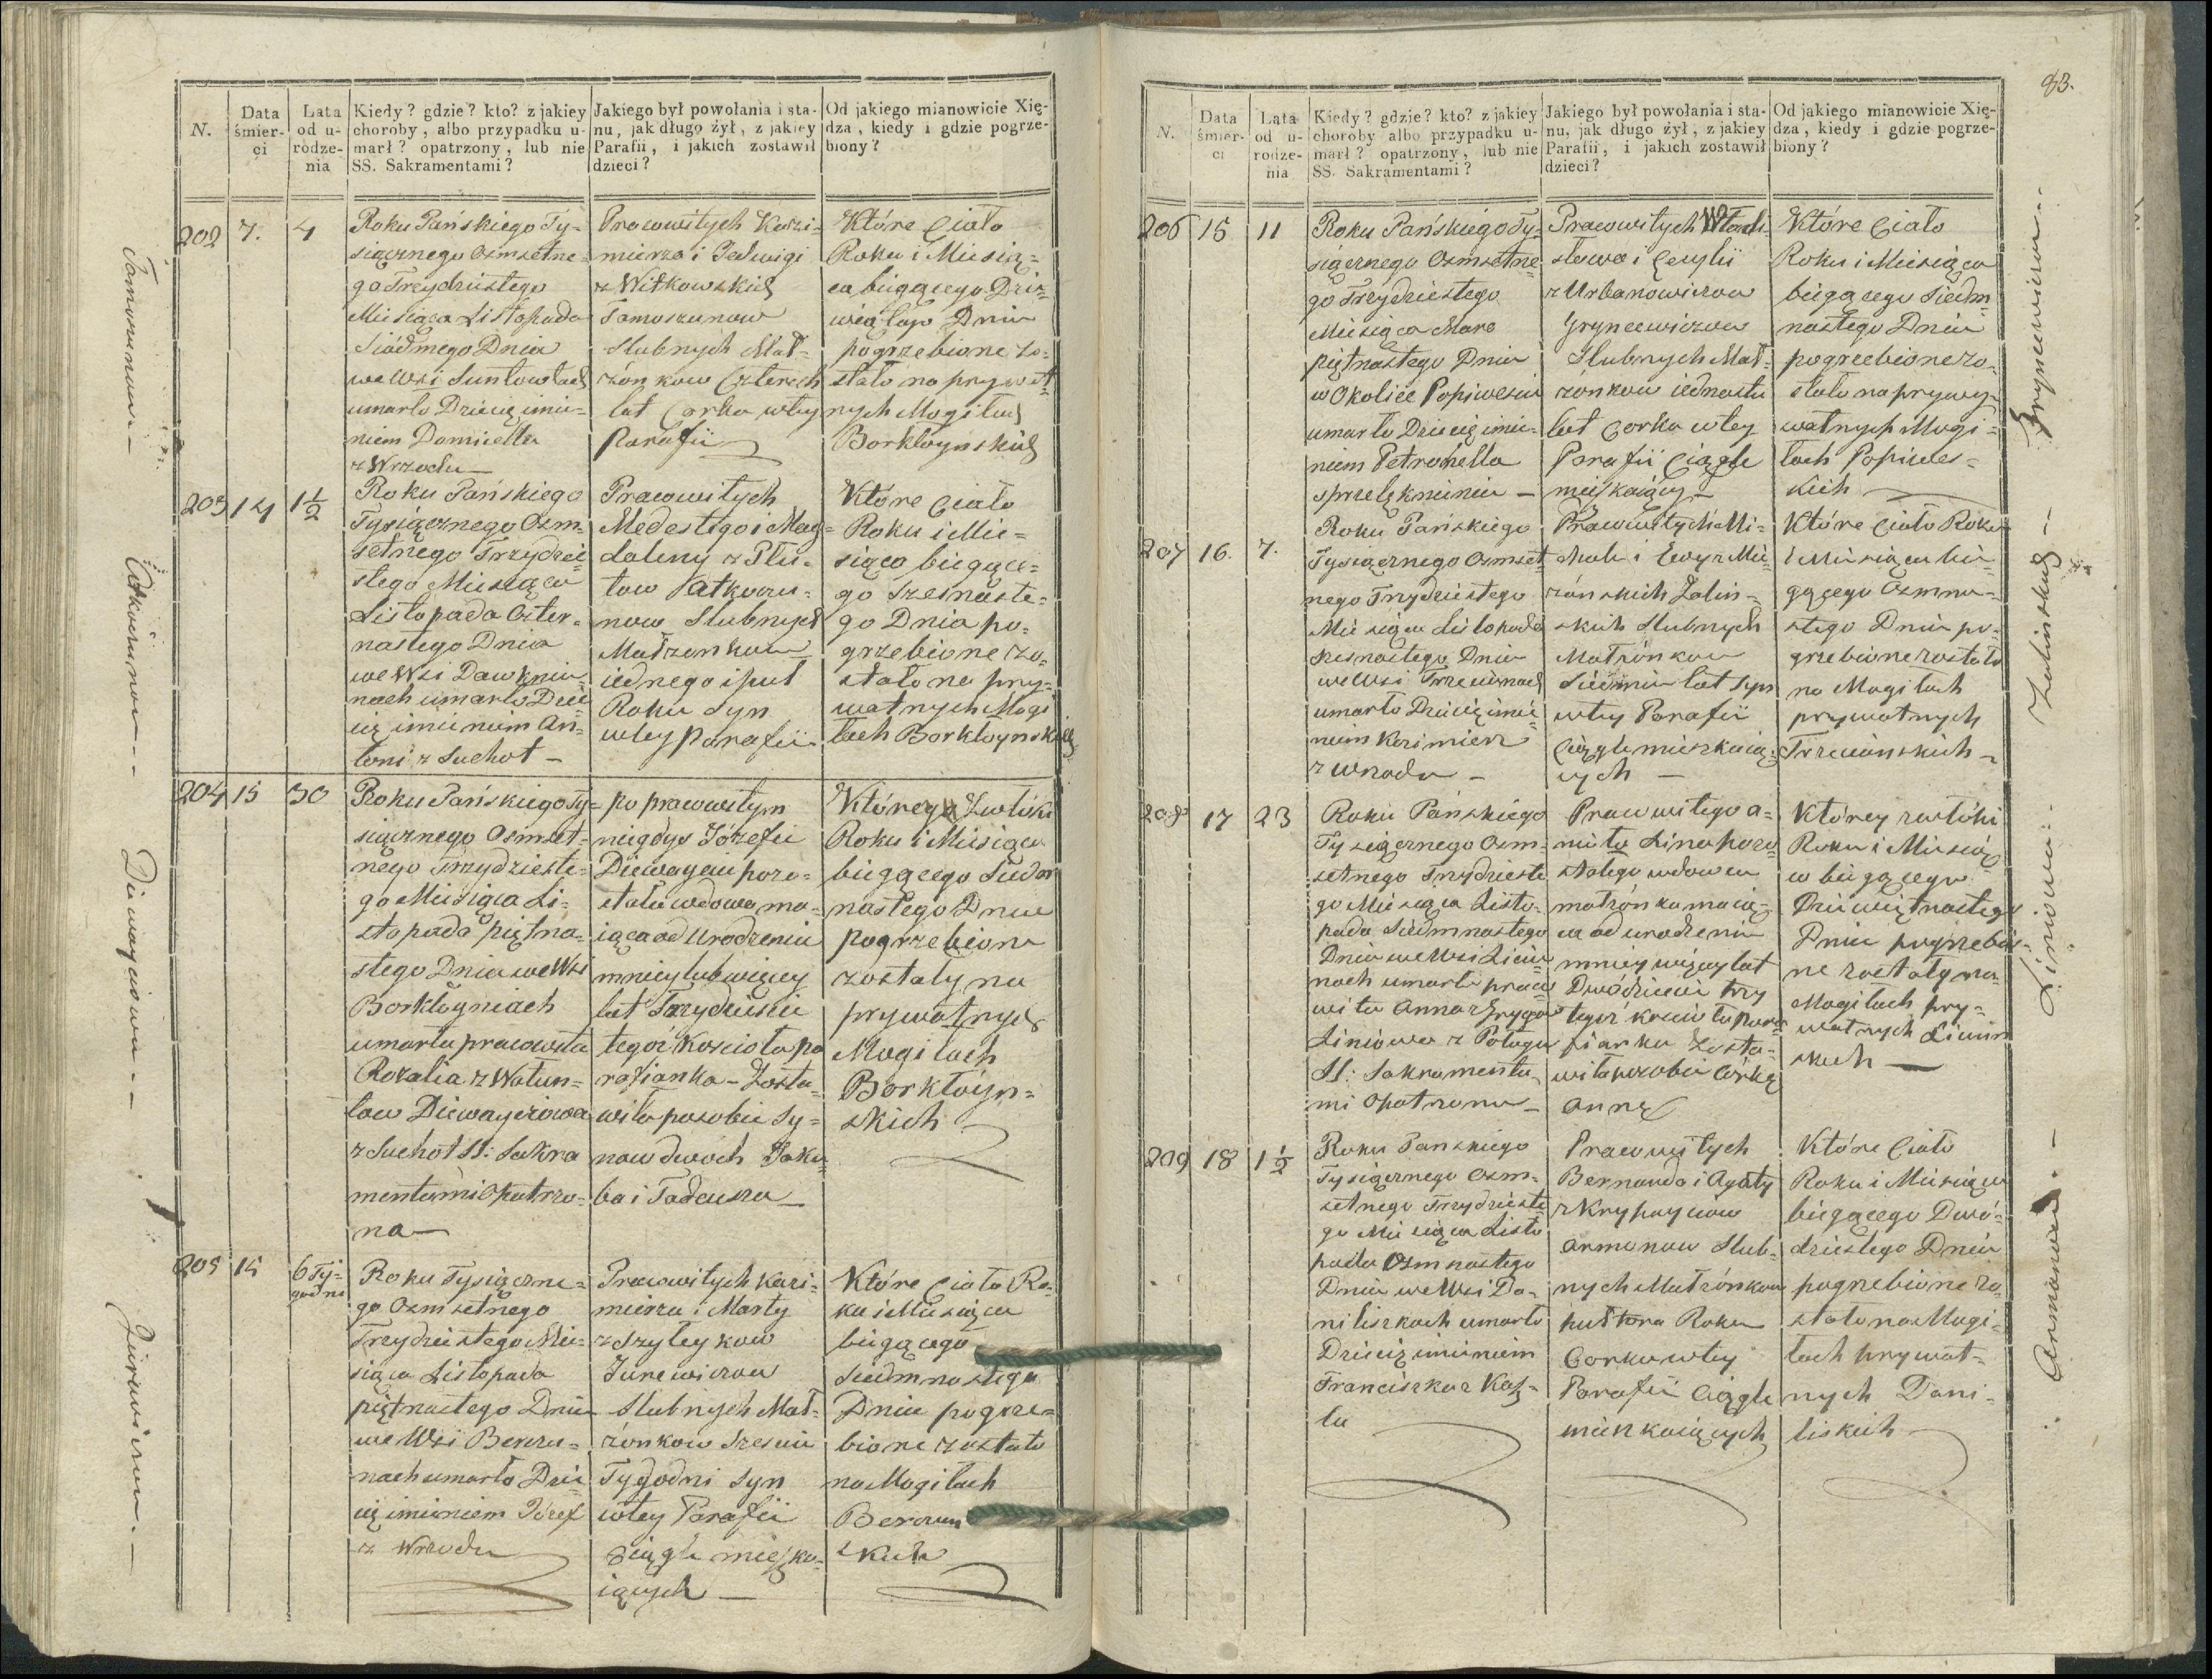 N.
Data śmierci
Lata od urodzenia
Kiedy? gdzie? kto? z jakiey
choroby, albo przypadku u-
marł? opatrzony, lub nie
SS. Sakramentami?
Jakiego był powołania i sta-
nu, jak długo żył, z jakiey
Parafii, i jakich zostawił
dzieci?
Od jakiego mianowicie Xię-
dza, kiedy i gdzie pogrze-
biony?
202
7.
4
Roku Pańskiego Ty-
siącznego Osmsetne-
go Trzydziestego
Miesiąca Listopada
Siódmego Dnia
we Wsi
umarło Dziecię imie-
niem Domicella
z Wrzodu
Prawowitych Kazi-
mierza i Jadwigi
z Witkowskich
Tamoszunow
Slubnych Mał-
żonkow Czterech
lat Corka wtey
Parafii
Które Ciało
Roku i Miesią-
ca biegącego Dzie-
wiątego Dnia
pogrzebione zo-
stało na prywat-
nych Mogiłach
Borkłoynskich
203
14
1½
Roku Pańskiego
Tysiącznego Osm-
setnego Trzydzie-
stego Miesiąca
Listopada Czter-
nastego Dnia
we Wsi Dawknie-
nach umarło Dzie-
cię imieniem An-
toni z Suchot
Prawowitych
Medestego i Mag-
daleny z
now Slubnych
Małżonkow
iednego i puł
Roku Syn
wtey Parafii
Które Ciało
Roku i Mie-
siąca biegące-
go Szesnaste-
go Dnia po-
grzebione zo-
stało na pry-
watnych Mogi
łach Borkłoynskich
204
15
30
Roku Pańskiego Ty-
siącznego Osmset-
nego Trzydzieste-
go Miesiąca Li-
stopada piętna-
stego Dnia we Wsi
Borkłoyniach
umarła pracowita
Rozalia z Watun-
low Diewayciowa
z Suchot SS: Sakra
mentami Opatrzo-
na
po pracowitym
niegdyś Józefie
Diewayciu pozo-
stała wdowa ma-
iąca od Urodzenia
mniey lub więcey
lat Trzydzieści
tegoż Kościoła pa
rafianka - Zosta-
wiła po sobie Sy-
now dwóch Jaku
ba i Tadeusza
Którey Zwłoki
Roku i Miesiąca
biegącego Siedm
nastego Dnia
pogrzebione
zostały na
prywatnych
Mogiłach
Borkłoyn-
skich
205
15
6 Ty-
godni
Roku Tysiączne-
go Osmsetnego
Trzydziestego Mie-
siąca Listopada
piętnastego Dnia
we Wsi Berzu-
nach umarło Dzie
cię imieniem Józef
z Wrzodu
Pracowitych Kazi-
mierza i Marty
z Szyleykow
Jurewiczow
Slubnych Mał-
żonkow Sześciu
Tygodni Syn
wtey Parafii
Ciągle mieszka-
iących
Które Ciało Ro-
ku i Miesiąca
biegącego
Siedmnastego
Dnia pogrze-
bione zostało
na Mogiłach
Berzun
skich
Tamoszunow
Diewayciowa
Jurewiczow
83.
N.
Data śmierci
Lata od urodzenia
Kiedy? gdzie? kto? z jakiey
choroby albo przypadku u-
marł? opatrzony, lub nie
SS. Sakramentami?
Jakiego był powołania i sta-
nu, jak długo żył, z jakiey
Parafii, i jakich zostawił
dzieci?
Od jakiego mianowicie Xię-
dza, kiedy i gdzie pogrze-
biony?
206
15
11
Roku Pańskiego Ty-
siącznego Osmsetne
go Trzydziestego
Miesiąca
piętnastego Dnia
w Okolice Popiwesiu
umarło Dziecię imie-
niem Petronella
z przelęknienia
Pracowitych Władi-
sława i Cecylii
z Urbanowiczow
Gryncewiczow
Slubnych Mał-
żonkow iednastu
lat Corka wtey
Parafii Ciągle
mieszkaiący
Które Ciało
Roku i Miesiąca
biegącego Siedm
nastego Dnia
pogrzebione zo-
stało na prywy-
watnych Mogi-
łach Popiwes-
kich
207
16.
7.
Roku Pańskiego
Tysiącznego Osmset
nego Trzydziestego
Miesiąca Listopada
szesnastego Dnia
we Wsi
umarło Dziecię imie-
niem Kazimierz
z wrzodu
Prawowitych Mi-
chała i Ewy z Mie-
rzńskich Zalin-
skich Slubnych
Małżonkow
Siedmiu lat Syn
wtey Parafii
Ciągle mieszkaią-
cych
Które Ciało Roku
i Miesiąca bie-
gącego Osmna-
stego Dnia po-
grzebione zostało
na Mogiłach
prywatnych
208
17
23
Roku Pańskiego
Tysiącznego Osm-
setnego Trzydzieste
go Miesiąca Listo-
pada Siedmnastego
Dnia we Wsi
nach umarła praco
wita Anna z
Liniowa z Połogu
SS: Sakramenta-
mi Opatrzona
Pracowitego
pozo
stałego wdowca
małżonka maią-
ca od urodzenia
mniey więcey lat
Dwadzieścia trzy
tegoż kościoła para
fianka Zosta-
wiła po sobie Córkę
Annę
Którey zwłoki
Roku i Miesią
ca biegącego
Dziewiętnastego
Dnia pogrzebio-
ne zostały na
Mogiłach pry-
watnych
skich
209
18
1½
Roku Pańskiego
Tysiącznego Osm-
setnego Trzydzieste
go Miesiąca Listo
pada Osmnastego
Dnia we Wsi Da-
niliszkach umarło
Dziecię imieniem
Franciszka z Kasz-
lu
Pracowitych
Bernarda i Agaty
z
Armanow Slub-
nych Małżonkow
pułtora Roku
Corka wtey
Parafii Ciągle
mieszkaiących
Które Ciało
Roku i Miesiąca
biegącego Dwó-
dziestego Dnia
pogrzebione zo-
stało na Mogi-
łach prywat-
nych Dani-
liskich
Gryncewiczow
Zalinskich
Liniowa
Armanow